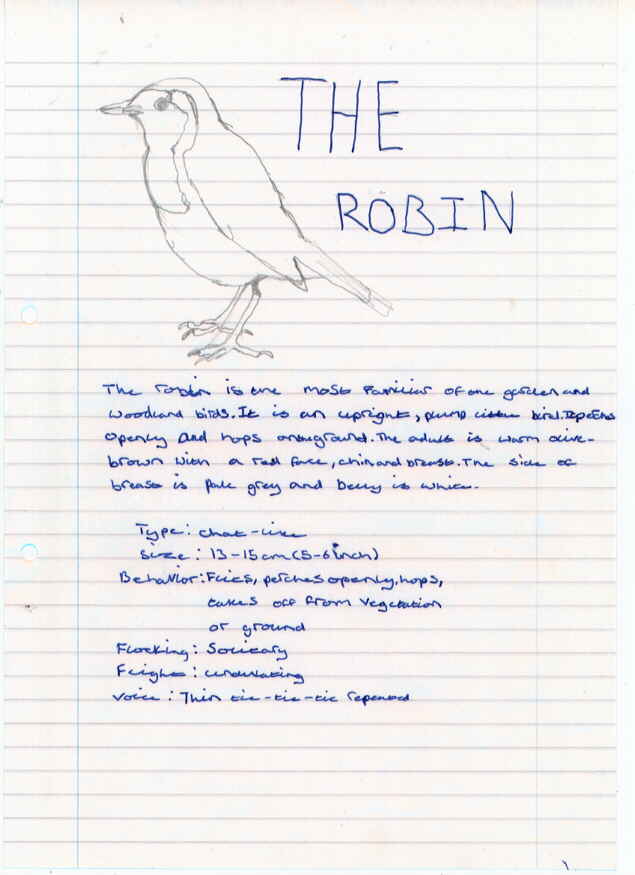 THE
ROBIN
The robin is the most familiar of the garden and
woodland birds. It is an upright, plump little bird. It perches
openly and hops on ground. The adult is warm olive-
brown with a red face, chin and breast. The side of
breast is pale grey and belly is white.
Type: chat-like
Size: 13-15cm (5-6 inch)
Behavior: Flies, perches openly, hops,
takes off from vegetation
or ground
Flocking: Solitary
Flight: undulating
Voice: Thin tic-tic-tic repeated